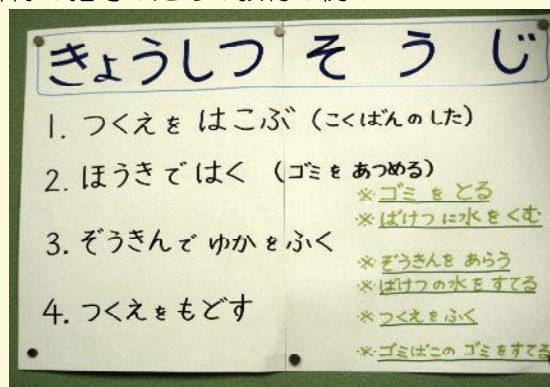 きょうしつ そうじ
1. つくえを はこぶ (こくばんのした)
2. ほうきで はく (ゴミを あつめる)
※ ゴミ を とる
※ ばけつに水をくむ
3. ぞうきんで ゆかをふく
※ ぞうきんを あらう
※ ばけつの水をすてる
4. つくえをもどす
※ つくえをふく
※ ゴミばこの ゴミをすてる